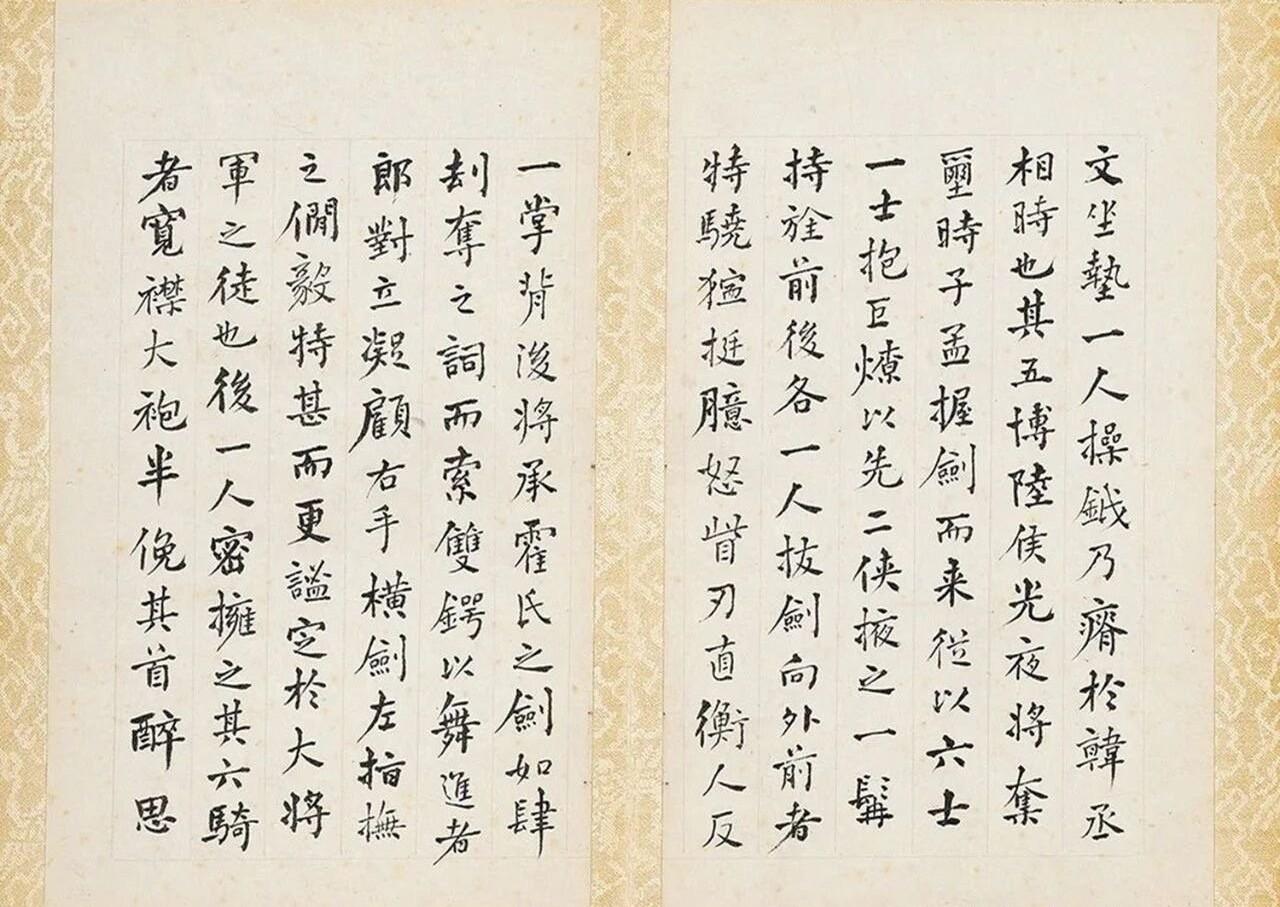 文坐執一人操鉞乃瘠於韓丞
相時也其五博陸侯光夜將奪
璽時子孟握劍而来從以六士
一士抱巨燎以先二俠掖之一髯
持旌前後各一人拔劍向外前者
特驍猛挺臆怒眥刃直衡人反
一掌背後將承霍氏之劍如肆
刦奪之詞而索雙鍔以舞進者
郎對立凝顧右手橫劍左指撫
之僩毅特甚而更謐定於大將
軍之徒也後一人密擁之其六騎
者寬襟大袍半俛其首醉思